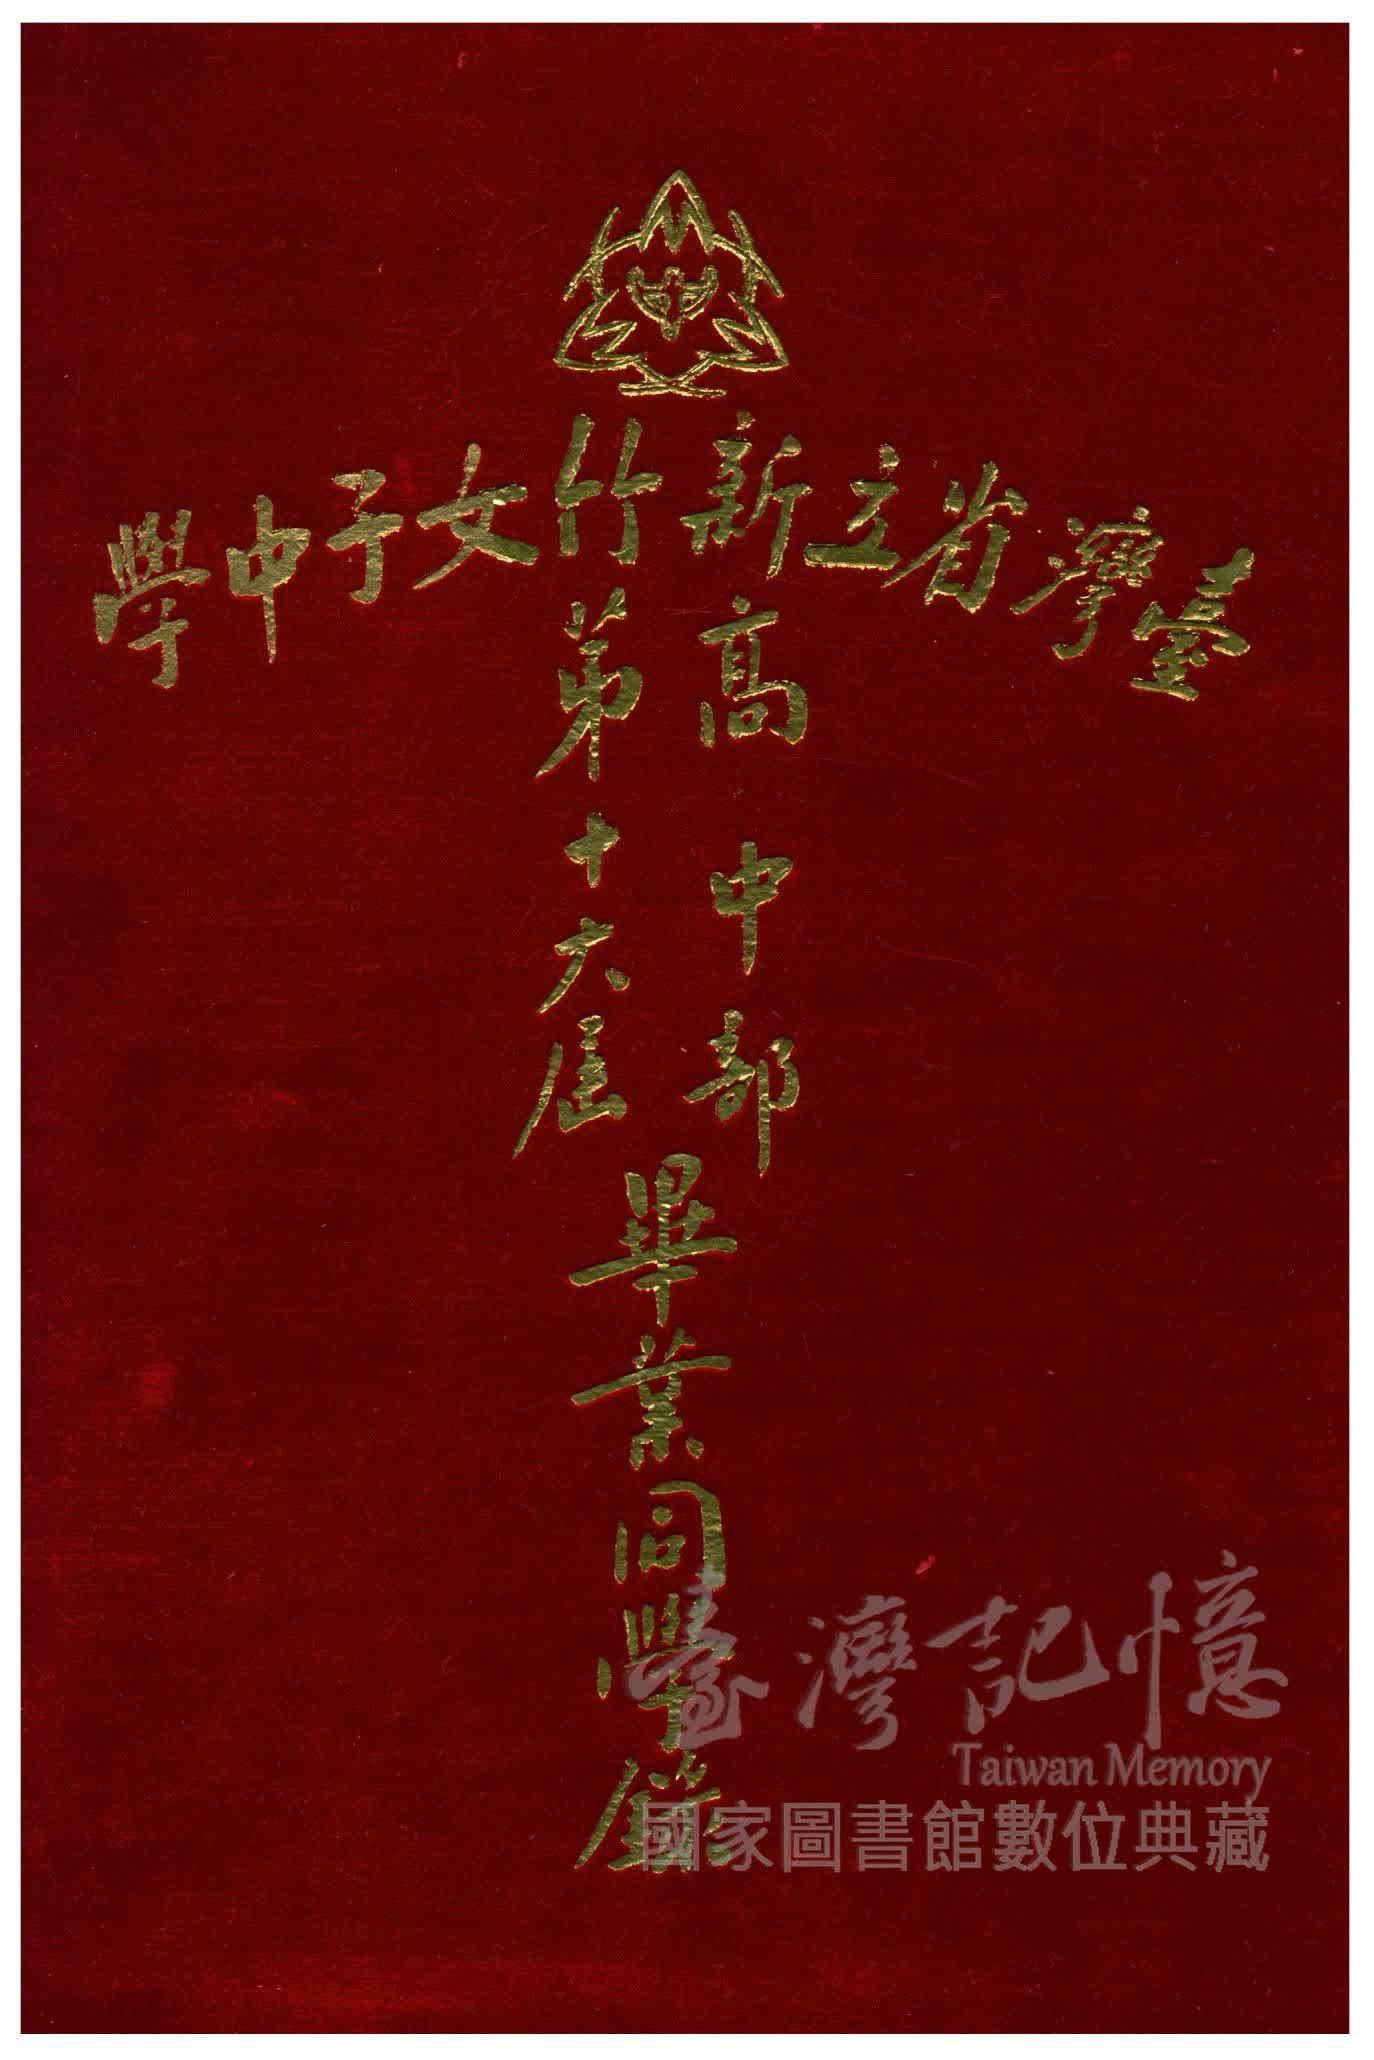 臺灣省立新竹女子中學
高中部
第十六屆
畢業同學錄
臺灣記憶
Taiwan Memory
國家圖書館數位典藏